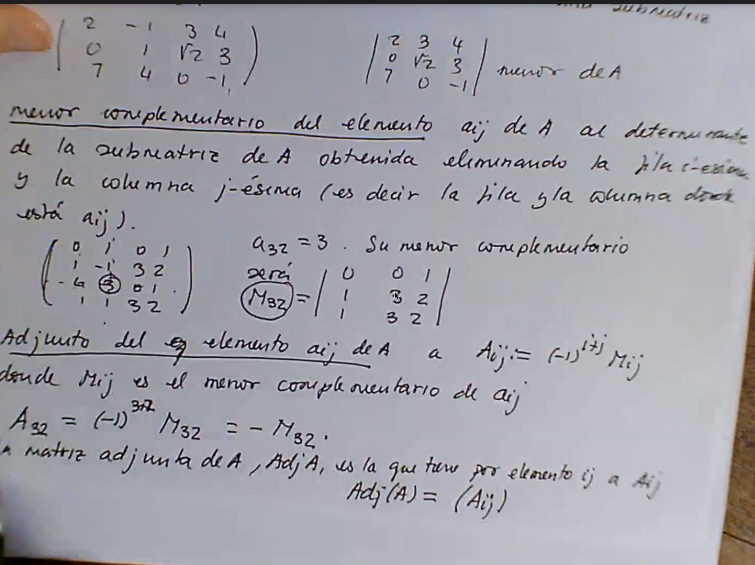 submatriz
( 2 -1 3 4 )
( 0 1 √2 3 )
( 7 4 0 -1 )
| 2 3 4 |
| 0 √2 3 |
| 7 0 -1 |
menor de A
menor complementario del elemento aij de A al determinante
de la submatriz de A obtenida eliminando la fila i-ésima
y la columna j-ésima (es decir la fila y la columna donde
está aij).
( 0 1 0 1 )
( 1 -1 3 2 )
( -4 3 0 1 )
( 1 1 3 2 )
a32 = 3. Su menor complementario
será
M32 = | 0 0 1 |
| 1 3 2 |
| 1 3 2 |
Adjunto del elemento aij de A a Aij := (-1)^i+j Mij
donde Mij es el menor complementario de aij
A32 = (-1)^3+2 M32 = - M32.
matriz adjunta de A, Adj A, es la que tiene por elemento ij a Aij
Adj(A) = (Aij)